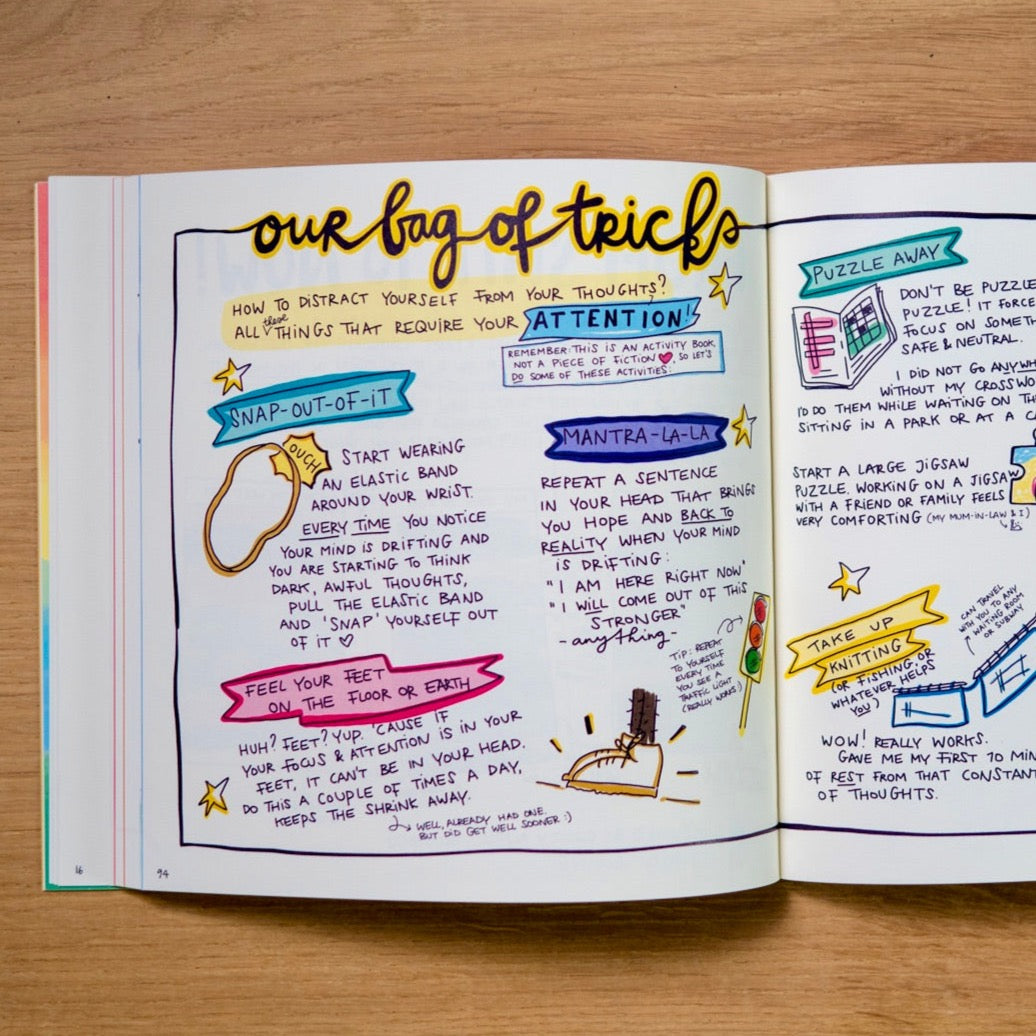 our bag of tricks
HOW TO DISTRACT YOURSELF FROM YOUR THOUGHTS?
ALL these THINGS THAT REQUIRE YOUR ATTENTION!
REMEMBER: THIS IS AN ACTIVITY BOOK,
NOT A PIECE OF FICTION ♥, SO LET'S
DO SOME OF THESE ACTIVITIES:
SNAP-OUT-OF-iT
OUCH!
START WEARING
AN ELASTIC BAND
AROUND YOUR WRIST.
EVERY TIME YOU NOTICE
YOUR MIND IS DRIFTING AND
YOU ARE STARTING TO THINK
DARK, AWFUL THOUGHTS,
PULL THE ELASTIC BAND
AND 'SNAP' YOURSELF OUT
OF iT ♡
FEEL YOUR FEET
ON THE FLOOR OR EARTH
HUH? FEET? YUP. 'CAUSE IF
YOUR FOCUS & ATTENTION IS IN YOUR
FEET, IT CAN'T BE IN YOUR HEAD.
DO THIS A COUPLE OF TIMES A DAY,
KEEPS THE SHRINK AWAY.
WELL, ALREADY HAD ONE.
BUT DID GET WELL SOONER :)
MANTRA-LA-LA
REPEAT A SENTENCE
IN YOUR HEAD THAT BRINGS
YOU HOPE AND BACK TO
REALITY WHEN YOUR MIND
IS DRIFTING:
"I AM HERE RIGHT NOW"
"I WILL COME OUT OF THIS
STRONGER"
-anything-
TIP: REPEAT
TO YOURSELF
EVERY TIME
YOU SEE A
TRAFFIC LIGHT
(REALLY WORKS!)
16
94
PUZZLE AWAY
DON'T BE PUZZLE
PUZZLE! IT FORCE
FOCUS ON SOMETH
SAFE & NEUTRAL.
I DID NOT GO ANYWH
WITHOUT MY CROSSWO
I'D DO THEM WHILE WAITING ON TH
SITTING IN A PARK OR AT A C
START A LARGE JIGSAW
PUZZLE. WORKING ON A JIGSAW
WITH A FRIEND OR FAMILY FEELS
VERY COMFORTING (MY MUM-IN-LAW & I)
CAN TRAVEL
WITH YOU TO ANY
WAITING ROOM
OR SUBWAY
TAKE UP
KNITTING
(OR FISHING, OR
WHATEVER HELPS
YOU)
WOW! REALLY WORKS.
GAVE ME MY FIRST 10 MIN
OF REST FROM THAT CONSTAN
OF THOUGHTS.